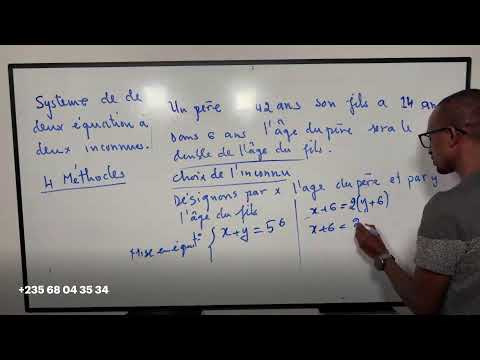 Système de de
deux équation à
deux inconnues.
4 Méthodes
Un père 42 ans son fils a 14 an
Dans 6 ans l'âge du père sera le
double de l'âge du fils.
choix de l'inconnu
Désignons par x l'age du père et par y
l'âge du fils
Mise en équat°
x+y = 56
x+6 = 2(y+6)
x+6 =
+235 68 04 35 34